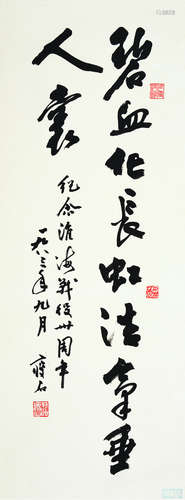 碧血化長虹浩氣垂
人寰
紀念淮海戰役卅周年
一九八三年九月